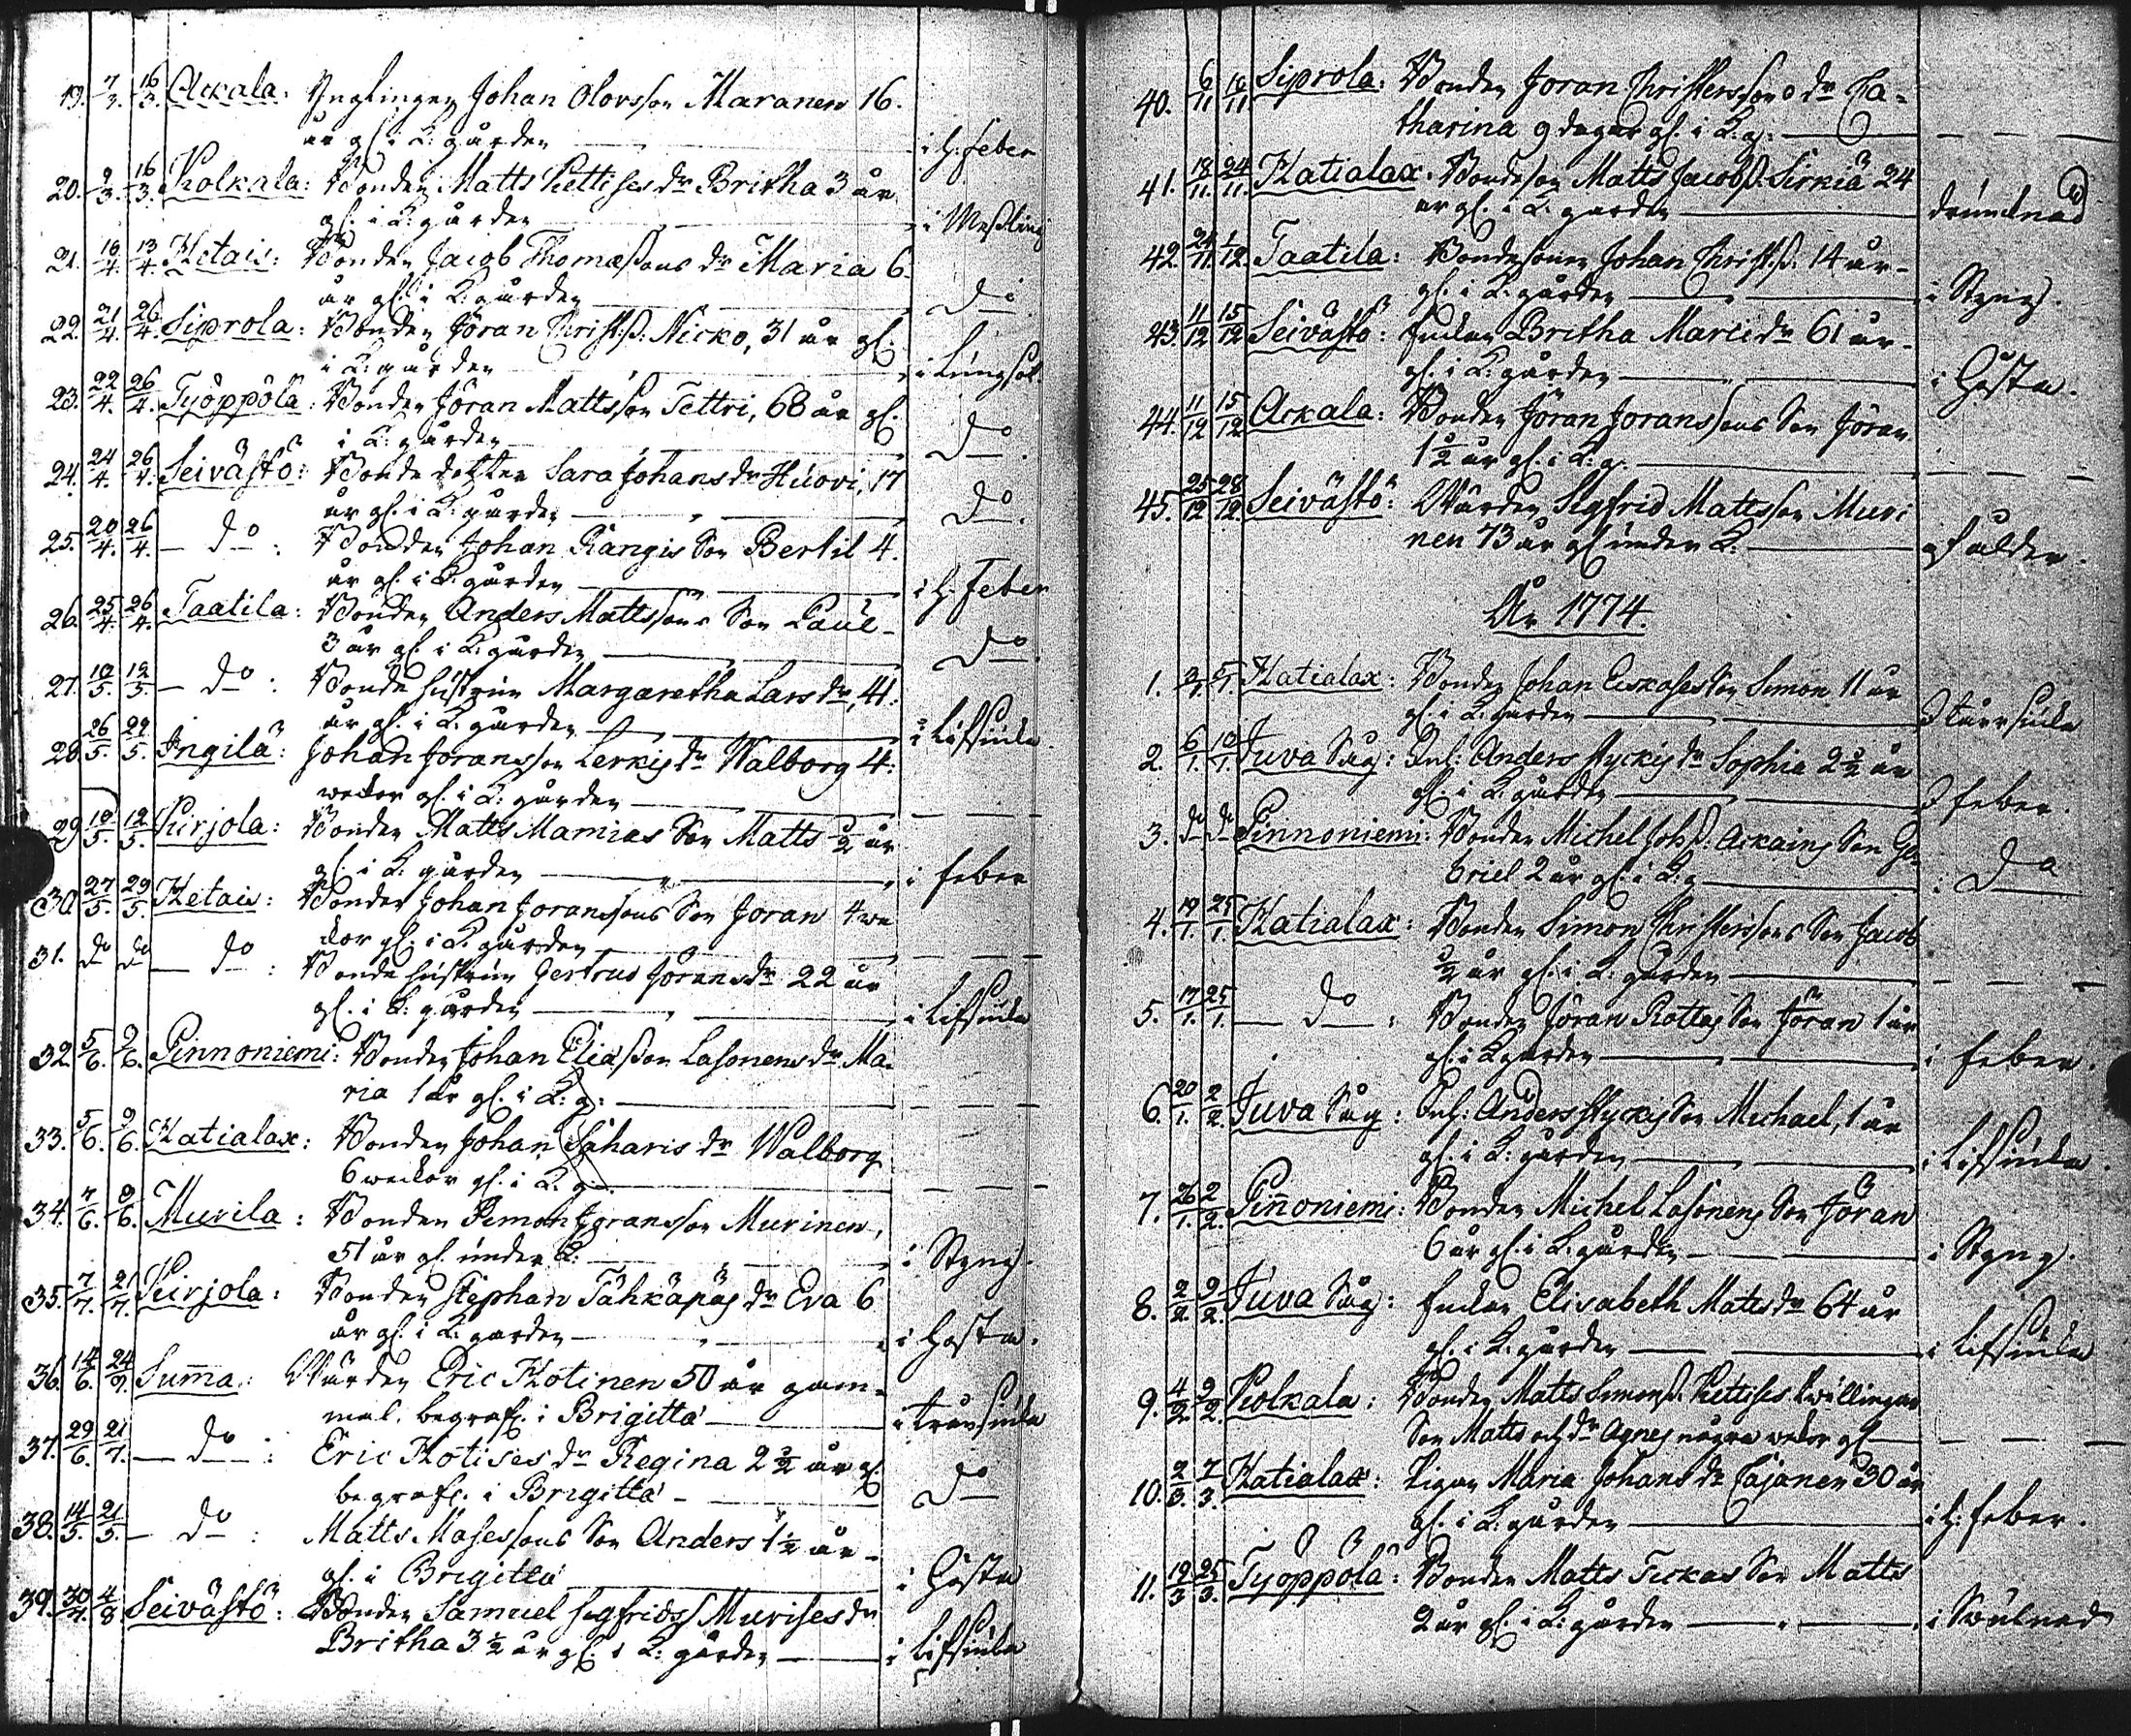 19. 7/3. 16/3. Ackala: Ynglingen Johan Olovsson Maranen 16.
år gl. i K: gården — i H: feber
20. 9/3. 16/3. Kolkala: Bonden Matts Kettises dr Britha 3 år
gl. i K: gården — i Messling
21. 10/4. 13/4. Ketais: Bonden Jacob Thomæssons dr Maria 6.
år gl. i K: gården — do
22. 21/4. 26/4. Siprola: Bonden Jöran Christ:ss: Nicko, 31 år gl.
i K: gården — i Lungsot
23. 22/4. 26/4. Työppölä: Bonden Jöran Mattsson Tettri, 68 år gl.
i K: gården — do.
24. 24/4. 26/4. Seivästö: Bonde dotter Sara Johans dr Huovi, 17
år gl. i K: gården — do.
25. 20/4. 26/4. — do: Bonden Johan Rangis Son Bertil 4.
år gl. i K: gården — i H: Feber
26. 25/4. 26/4. Taatila: Bonden Anders Mattssons Son Paul
3 år gl. i K: gården — do.
27. 10/5. 12/5. — do: Bonde hustrun Margaretha Lars dr, 41.
år gl. i K: gården — i Lifsiuka
28. 26/5. 29/5. Ingilä: Johan Joransson Lerkis dr Walborg 4.
weckor gl. i K: gården — — —
29. 10/5. 12/5. Kirjola: Bonden Matts Mamias Son Matts 1/2 år
gl. i K: gården — i feber
30. 27/5. 29/5. Ketais: Bonden Johan Joranssons Son Joran 4 we
ckor gl. i K: gården — — —
31. do do — do: Bonde hustrun Gertrud Jöransdr 22 år
gl. i K: gården — i Lifsiuka
32. 5/6. 9/6. Pinnoniemi: Bonden Johan Eliæsson Lasonens dr Ma-
ria 1 år gl. i K: g: — — —
33. 5/6. 9/6. Katialax: Bonden Johan Saharis dr Walborg
6 weckor gl. i K. g — — —
34. 7/6. 9/6. Murila: Bonden Simon Joransson Murinen,
51 år gl. under K: — i Styng.
35. 7/7. 21/7. Kirjola: Bonden Stephan Tähkäpäs dr Eva 6
år gl. i K: gården — i Hosta.
36. 14/6. 24/9. Suma: Wärden Eric Kotinen 50 år gam-
mal. begrafs. i Brigitta — i Trånsiuka
37. 29/6. 21/7. — do: Eric Kotises dr Regina 2 1/2 år gl.
begrafs. i Brigitta — do
38. 14/5. 21/5. — do: Matts Mosessons Son Anders 1 1/2 år
gl. i Brigitta — i Hosta
39. 30/7. 4/8 Seivästö: Bonden Samuel Segfridss Murises dr
Britha 3 1/2 år gl. i K: gården — i Lifsiuka
40. 6/11 10/11 Siprola: Bonden Joran Christerssons dr Ca-
tharina 9 dagar gl. i K. g: — — —
41. 18/11. 24/11. Katialax. Bondeson Matts Jacobss. Sirkiä 24
år gl. i K: gården — drunknad
42. 24/11. 1/12. Taatila: Bondesonen Johan Christ.ss: 14 år
gl. i K: gården — i Styng.
43. 11/12 15/12 Seivästö: Enkan Britha Marci dr 61 år
gl. i K: gården — i Hosta.
44. 11/12 15/12 Ackala: Bonden Jöran Joranssons Son Jöran
1 1/2 år gl. i K: g. — — —
45. 25/12 28/12. Seivästö: Wärden Sigfrid Mattsson Muri
nen 73 år gl. under K: — af ålder.
År 1774.
1. 2/1. 5/1. Katialax: Bonden Johan Eskoses Son Simon 11 år
gl. i K: gården — I Torrsiuka
2. 6/1. 10/1. Juva Såg: Inh: Anders Styckis dr Sophia 2 1/2 år
gl. i K: gården — I feber.
3. do do Pinnoniemi: Bonden Michel Johss. Ackains Son Ga-
briel 2 år gl. i K: g — i do
4. 19/1. 25/1. Katialax: Bonden Simon Christerssons Son Jacob
1/2 år gl. i K: gården — — —
5. 17/1. 25/1. — do: Bonden Jöran Rottas Son Jöran 1 år
gl. i K gården — i feber.
6. 20/1. 2/2. Juva Såg: Inh: Anders Styckis Son Michael, 1 år
gl. i K: gården — i Lifsiuka.
7. 26/1. 2/2. Pinnoniemi: Bonden Michel Lasonens Son Jöran
6 år gl. i K: gården — i Styng.
8. 2/2. 9/2. Juva Såg: Enkan Elisabeth Matts dr 64 år
gl. i K: gården — i Lifsiuka
9. 4/2. 9/2. Kolkala: Bonden Matts Simonss. Kettises twillingar
Son Matts och dr Agnes några weckor gl — — —
10. 2/3. 7/3. Katialax: Pigan Maria Johans dr Cajanen 30 år
gl. i K: gården — i H: feber.
11. 19/3 25/3. Työppölä: Bonden Matts Tickas Son Matts
2 år gl. i K: gården — i Swulnad